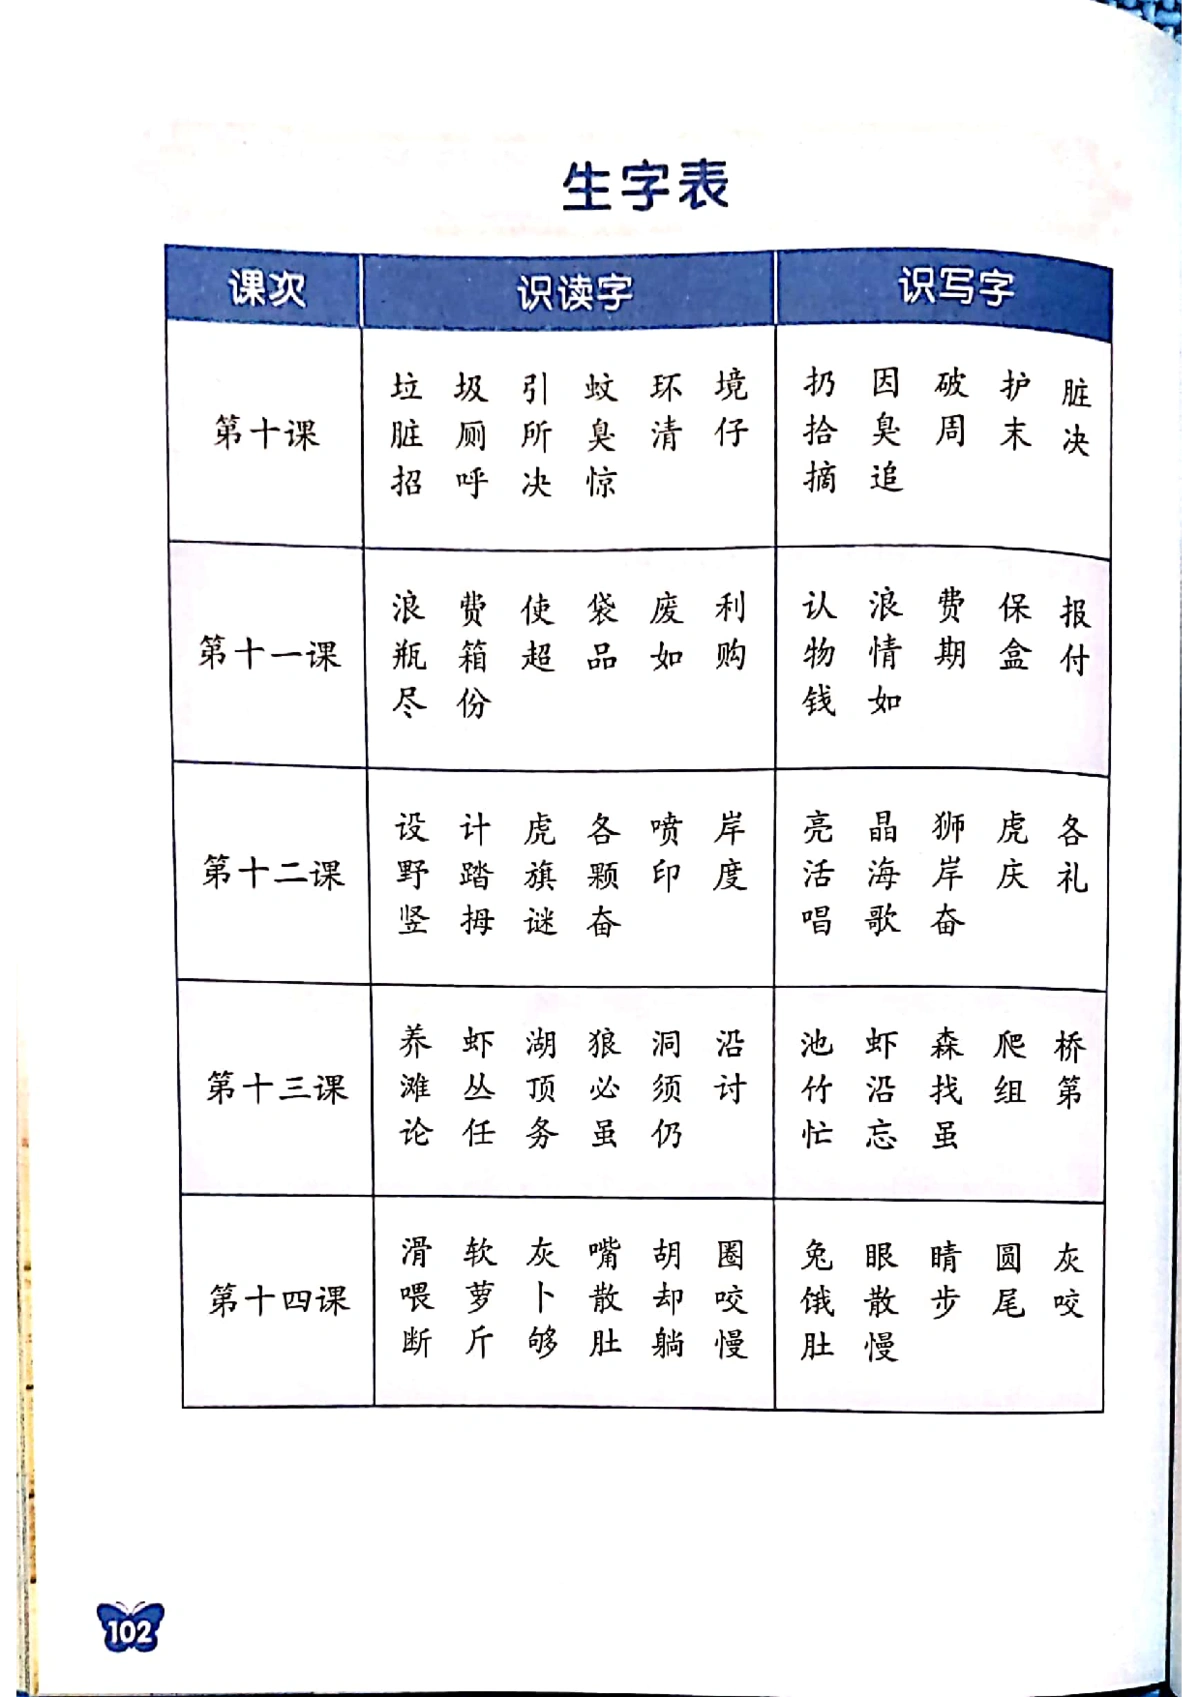 生字表
课次 识读字 识写字
第十课
垃 圾 引 蚊 环 境
脏 厕 所 臭 清 仔
招 呼 决 惊
扔 因 破 护 脏
拾 臭 周 末 决
摘 追
第十一课
浪 费 使 袋 废 利
瓶 箱 超 品 如 购
尽 份
认 浪 费 保 报
物 情 期 盒 付
钱 如
第十二课
设 计 虎 各 喷 岸
野 踏 旗 颗 印 度
竖 拇 谜 奋
亮 晶 狮 虎 各
活 海 岸 庆 礼
唱 歌 奋
第十三课
养 虾 湖 狼 洞 沿
滩 丛 顶 必 须 讨
论 任 务 虽 仍
池 虾 森 爬 桥
竹 沿 找 组 第
忙 忘 虽
第十四课
滑 软 灰 嘴 胡 圈
喂 萝 卜 散 却 咬
断 斤 够 肚 躺 慢
兔 眼 睛 圆 灰
饿 散 步 尾 咬
肚 慢
102